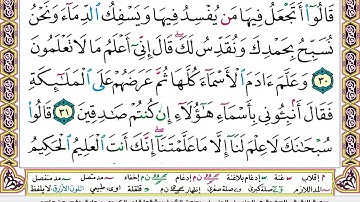 قَالُوٓا۟ أَتَجْعَلُ فِيهَا مَن يُفْسِدُ فِيهَا وَيَسْفِكُ ٱلدِّمَآءَ وَنَحْنُ
نُسَبِّحُ بِحَمْدِكَ وَنُقَدِّسُ لَكَ قَالَ إِنِّىٓ أَعْلَمُ مَا لَا تَعْلَمُونَ
٣٠ وَعَلَّمَ ءَادَمَ ٱلْأَسْمَآءَ كُلَّهَا ثُمَّ عَرَضَهُمْ عَلَى ٱلْمَلَـٰٓئِكَةِ
فَقَالَ أَنۢبِـُٔونِى بِأَسْمَآءِ هَـٰٓؤُلَآءِ إِن كُنتُمْ صَـٰدِقِينَ ٣١ قَالُوا۟
سُبْحَـٰنَكَ لَا عِلْمَ لَنَآ إِلَّا مَا عَلَّمْتَنَآ إِنَّكَ أَنتَ ٱلْعَلِيمُ ٱلْحَكِيمُ